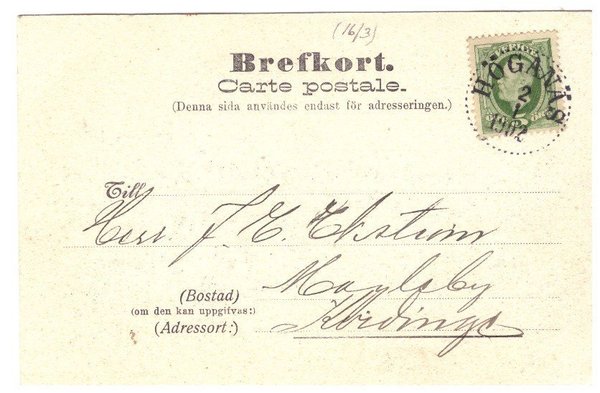 (16/3)
Brefkort.
Carte postale.
(Denna sida användes endast för adresseringen.)
HÖGANÄS
2
1
1902
Till
Herr J. E. Ekstrum
(Bostad)
(om den kan uppgifvas:)
(Adressort:)